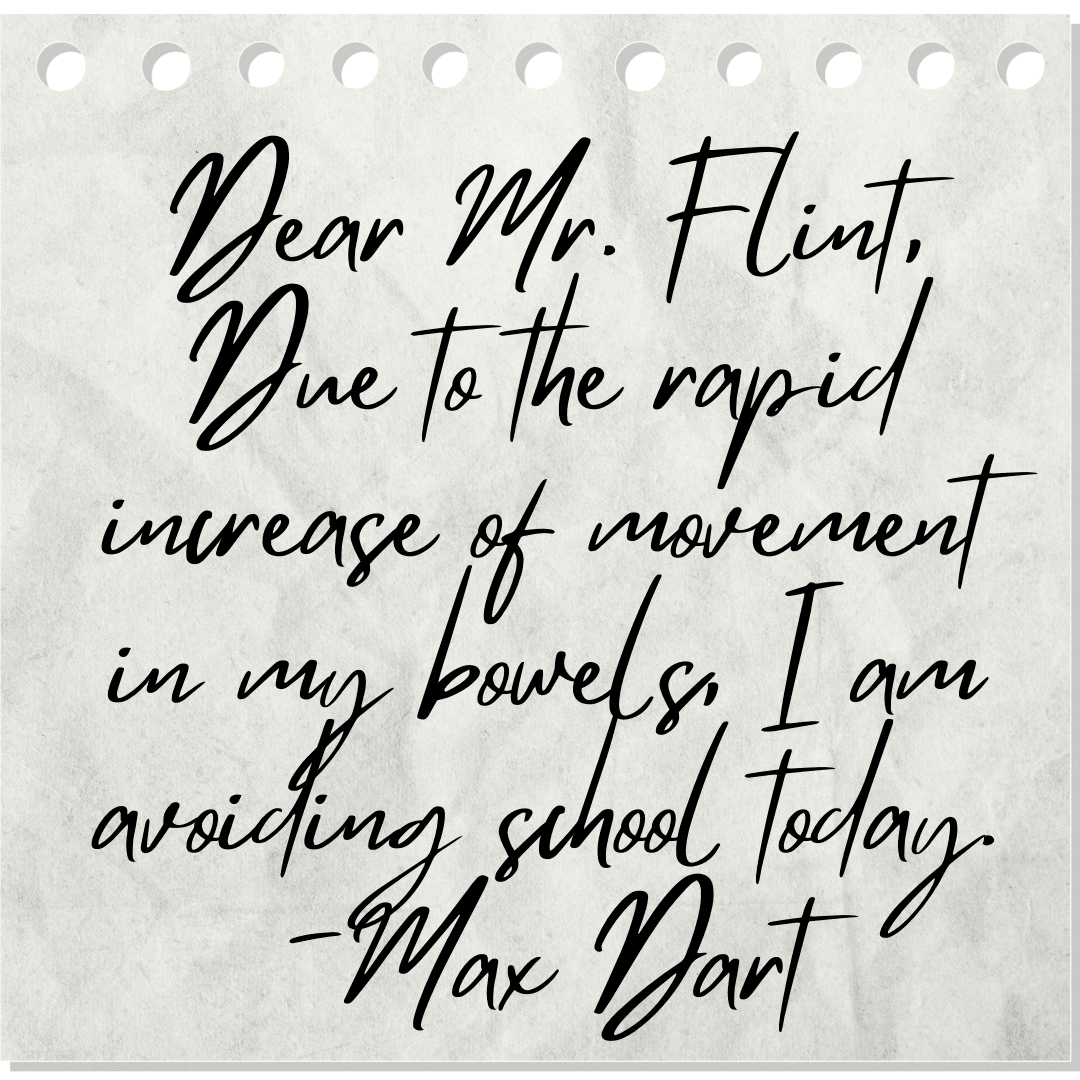 Dear Mr. Flint,
Due to the rapid
increase of movement
in my bowels, I am
avoiding school today.
-Max Dart